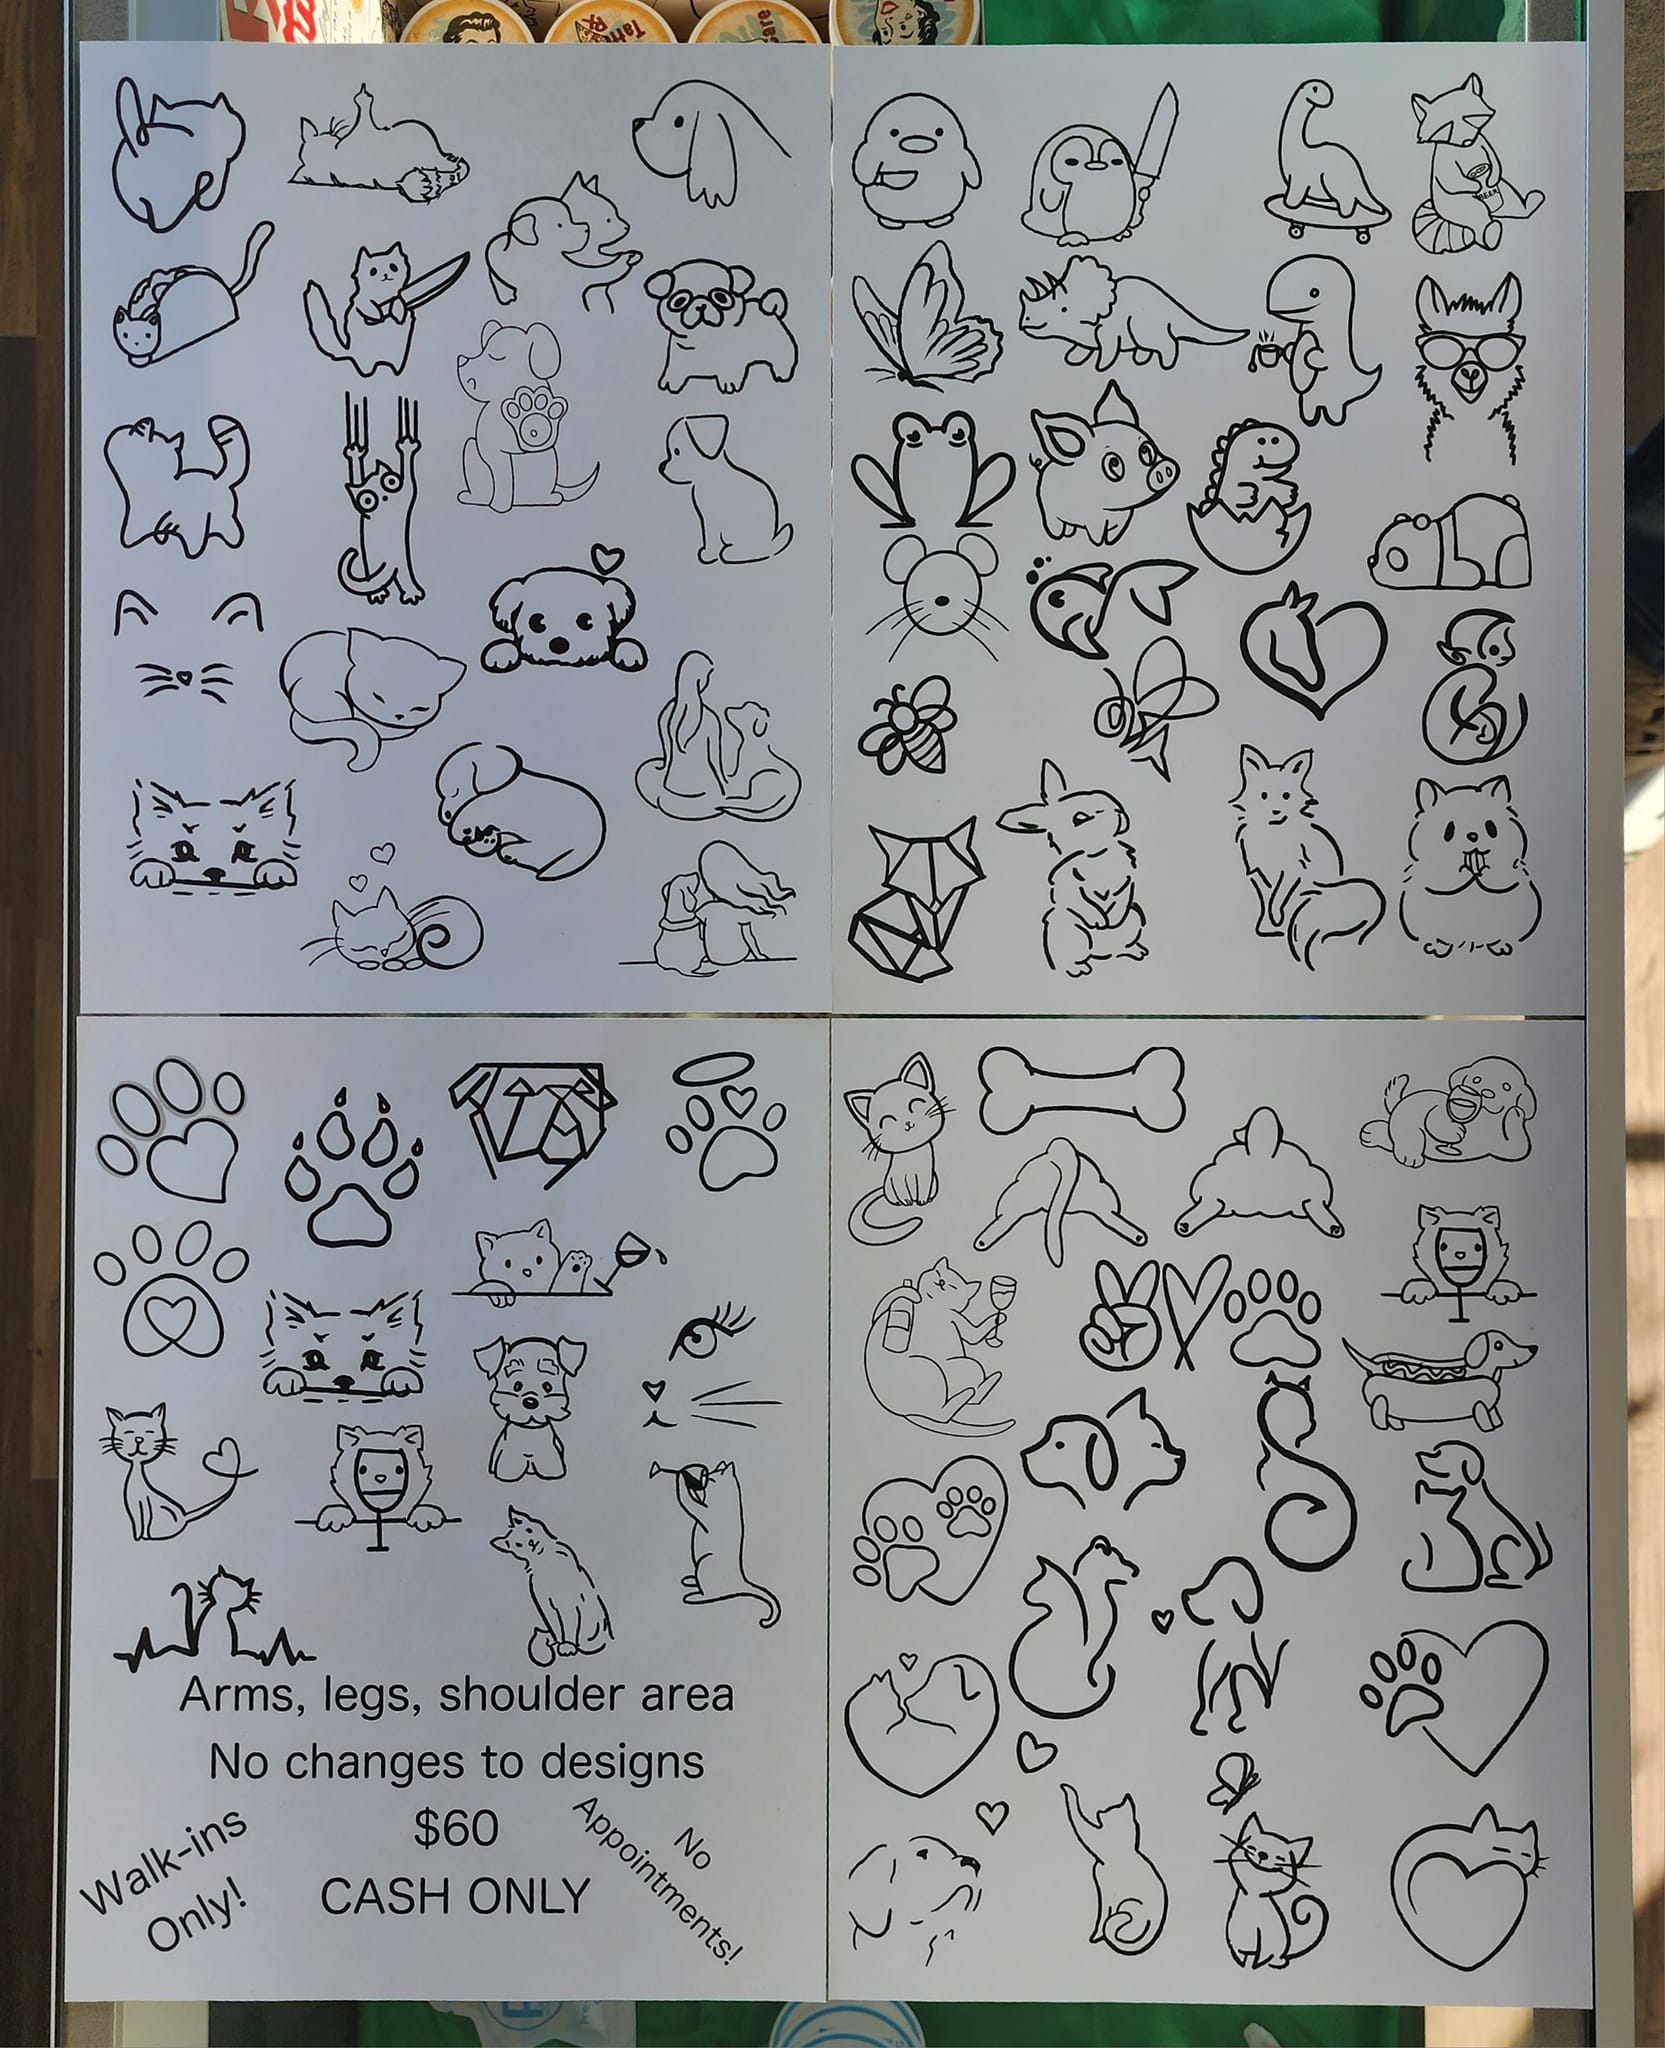 BEER
Arms, legs, shoulder area
No changes to designs
$60
CASH ONLY
Walk-ins
Only!
No
Appointments!